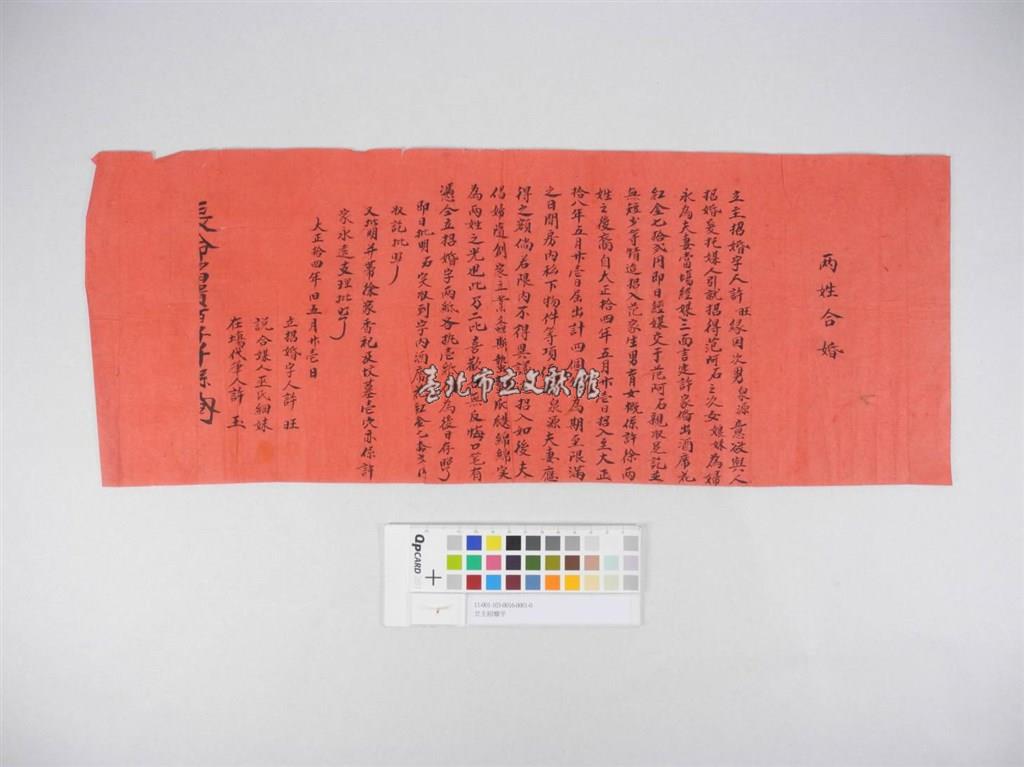 兩姓合婚
立主招婚字人許旺緣因次男泉源意欲與人
招婚爰托媒人引就招得范阿石之次女娘妹為婦
永為夫妻當場經媒三面言定許家備出酒席花
紅金七拾弍円即日經媒交于范阿石親收足訖並
無短少等情造招入范家生男育女概係許徐兩
姓之後裔自大正拾四年五月廿壱日招入至大正
拾八年五月廿壱日屆出計四個為期至限滿
之日閒房內私下物件等項泉源夫妻應
得之額倘若限內不得異議招入如後夫
倡婦隨創家立業螽斯蟄瓞綿綿實
為兩姓之光此乃二比喜歡無反悔口笔有
憑合立招婚字兩紙各执壱紙為後日存照
即日批明石实收到字内酒席紅金七拾弍円
收訖批照
又批明并帶徐家香祀及坟墓壱穴亦係許
家永遠支理批照
大正拾四年旧五月廿壱日
立招婚字人許旺
説合媒人巫氏細妹
在塲代筆人許玉
臺北市立文獻館
QPCARD
11-001-103-0016-0001-0
立主招婚字